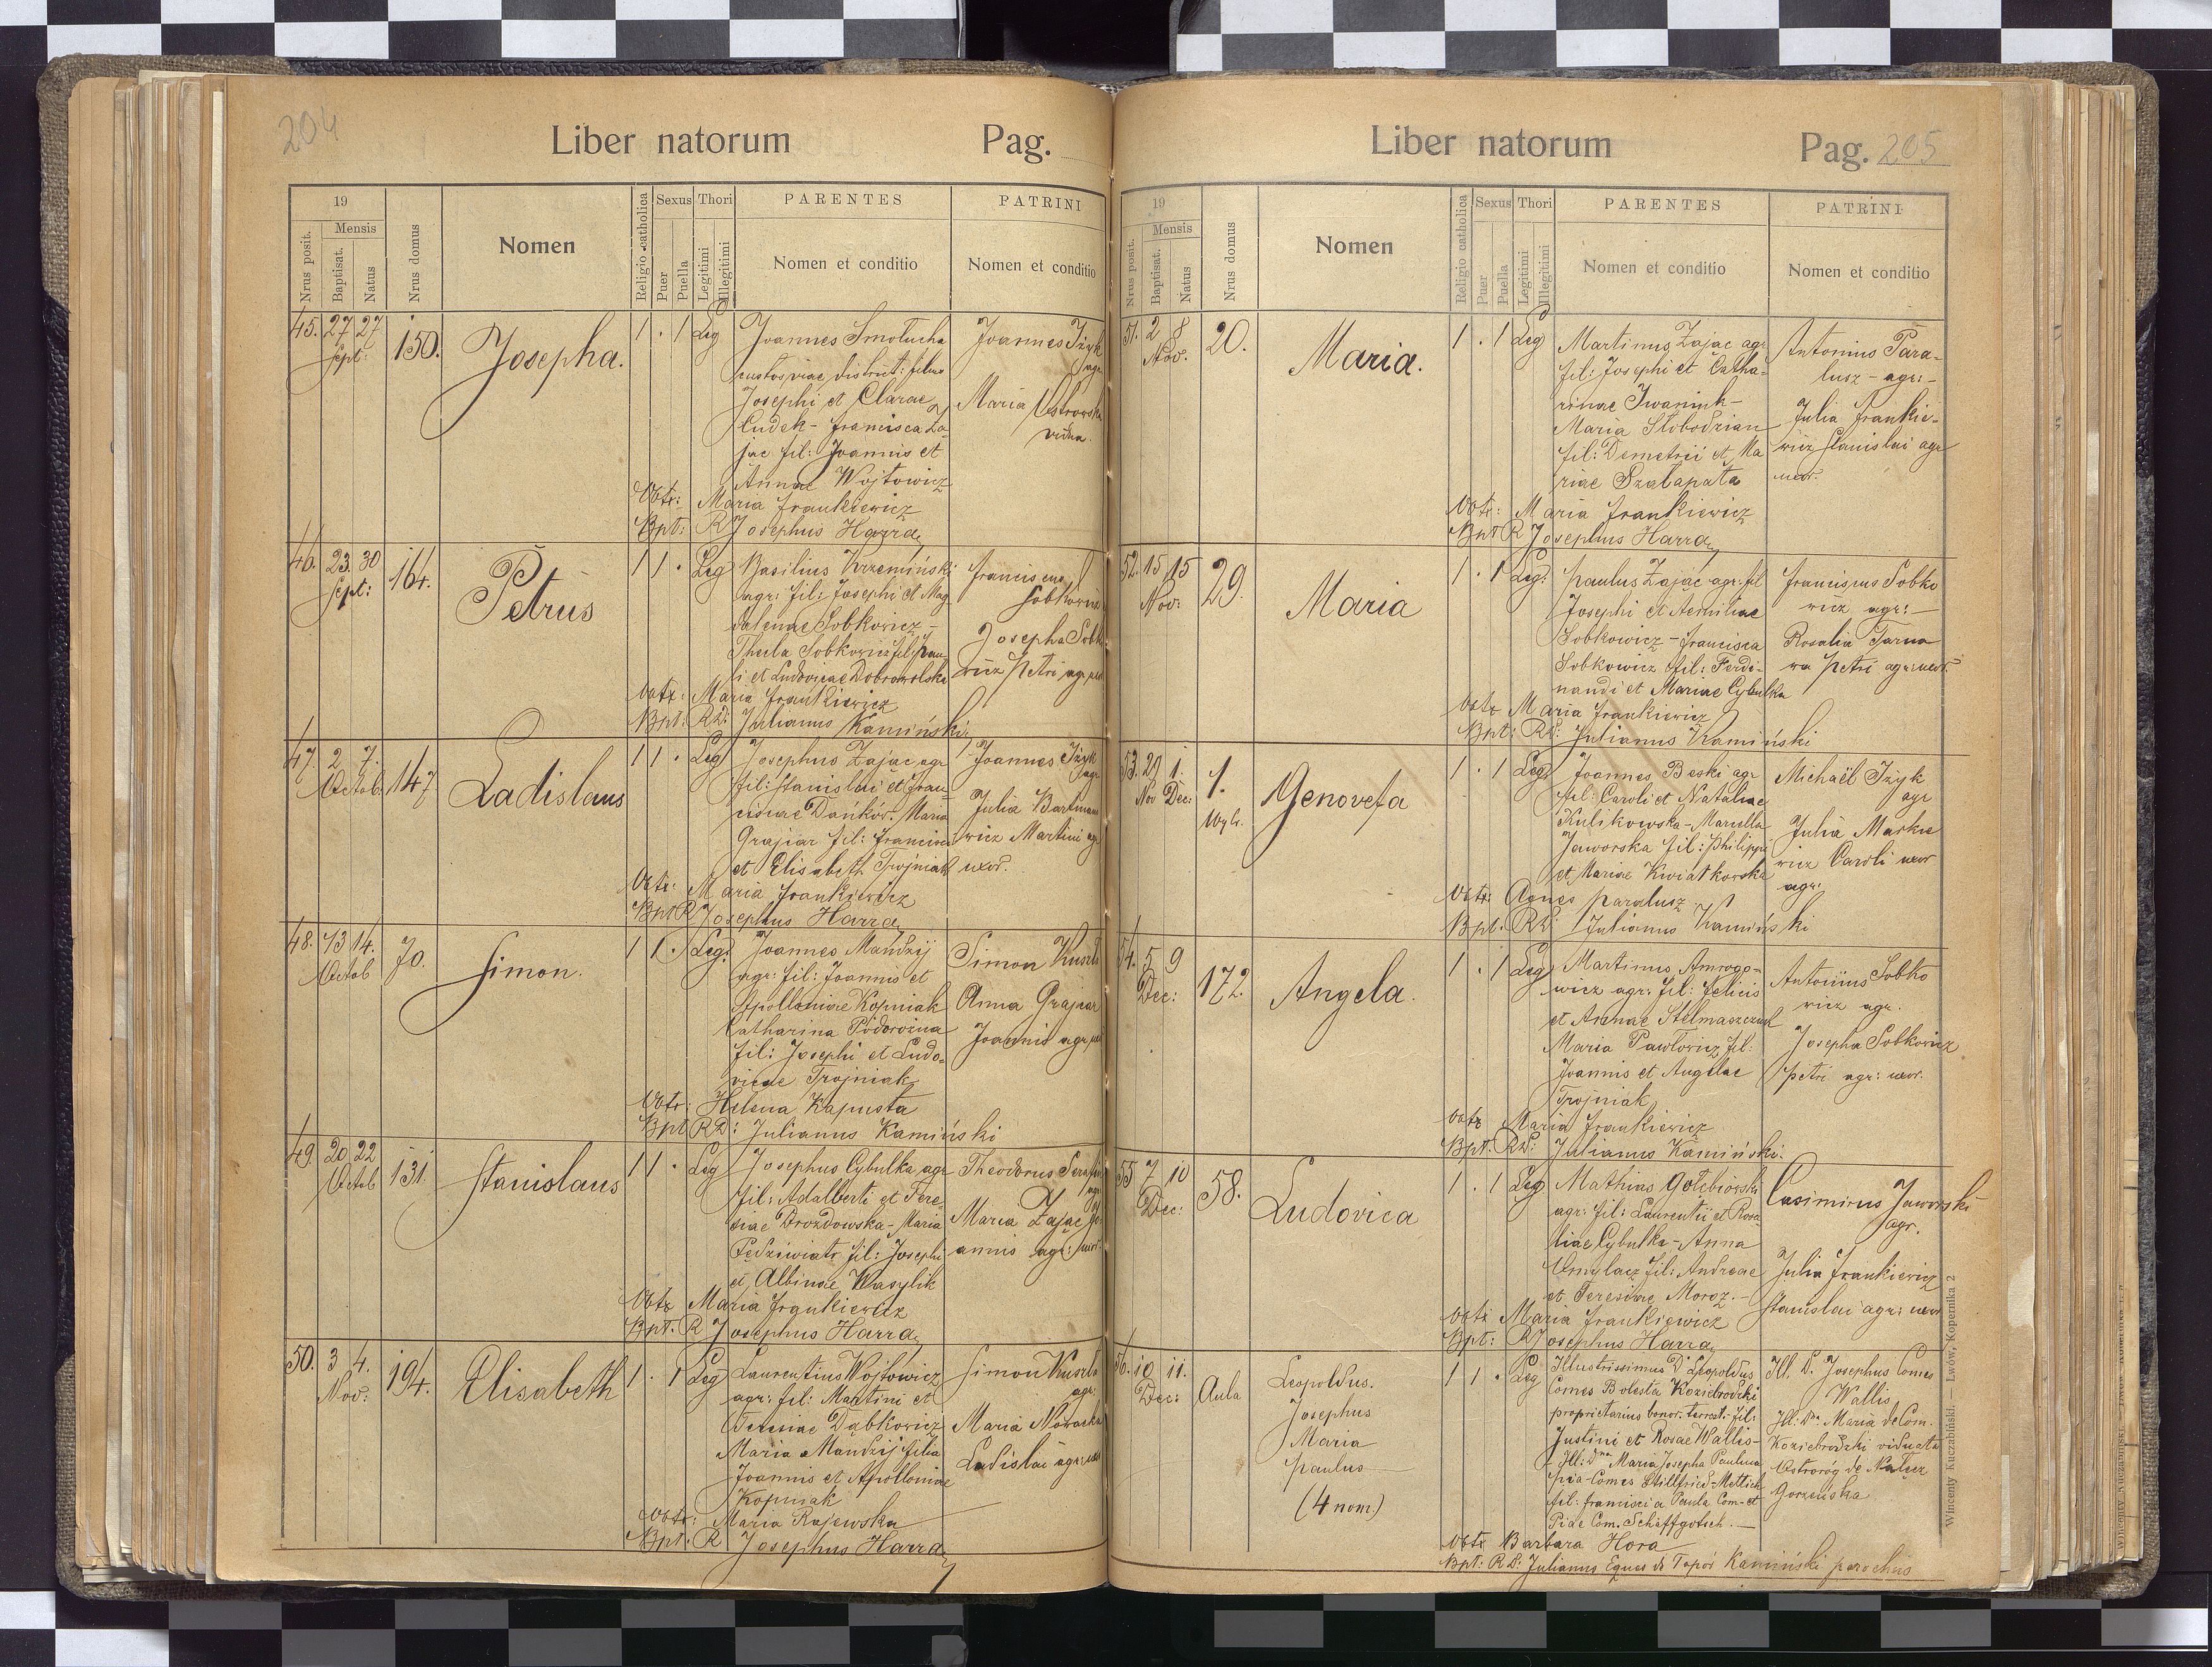 204
Liber natorum Pag.
19
Mensis
Nrus posit.
Baptisat.
Natus
Nrus domus
Nomen
Religio catholica
Sexus
Puer
Puella
Thori
Legitimi
Illegitimi
PARENTES
Nomen et conditio
PATRINI
Nomen et conditio
45. 27 27 150. Josepha. 1 . 1 Leg
Sept:
Joannes Smolucha
custos viae district: filius
Josephi et Clarae
Cudek - Francisca Za-
jac fil: Joannis et
Annae Wojtowicz
Joannes Izyk
agr
Maria Ostrowska
vidua.
Obtx: Maria Frankiewicz
Bpt: R Josephus Harra
46. 23. 30 164. Petrus 1 1 . Leg
Sept:
Basilius Krzemiński
agr: fil: Josephi et Mag
dalenae Sobkowicz -
Thecla Sobkowicz fil: Pau-
li et Ludovicae Dobrowolska
Franciscus
Sobkowicz
Josepha Sobk
wicz Petri agr
Obtx: Maria Frankiewicz
Bpt: RD: Julianus Kamiński
47. 2 7. 147 Ladislaus 1 1 . Leg
Octob.
Josephus Zajac agr
fil: Stanislai et Fran-
ciscae Dańków. Maria
Grajcar fil: Francisci
et Elisabeth Trojniak
Joannes Izyk
agr
Julia Bartman
wicz Martini agr
uxor.
Obtx: Maria Frankiewicz
Bpt R Josephus Harra
48. 13 14. 70. Simon. 1 1 . Leg.
Octob
Joannes Mandzij
agr: fil: Joannis et
Apolloniae Kopniak
Catharina Podorożna
fil: Josephi et Ludo-
vicae Trojniak
Simon Kuszla
Anna Grajcar
Joannis agr
Obtx: Helena Kapusta
Bpt RD: Julianus Kamiński
49. 20 22 131. Stanislaus 1 1 . Leg
Octob
Josephus Cybulka agr
fil: Adalberti et Tere-
siae Drozdowska - Maria
Pędziwiatr fil: Josephi
et Albinae Wasylik
Theodorus
agr
Maria Zajac Jo-
annis agr: uxor
Obtx Maria Frankiewicz
Bpt. R Josephus Harra
50. 3 4. 194. Elisabeth 1 . 1 Leg
Nov:
Laurentius Wojtowicz
agr: fil: Martini et
Teresiae Dąbkowicz
Maria Mandzij filia
Joannis et Apolloniae
Kopniak
Simon Kuszla
agr:
Maria Nowacka
Ladislai agr: uxor
Obtx: Maria Rajewska
Bpt. R Josephus Harra
Liber natorum Pag. 205
19
Mensis
Nrus posit.
Baptisat.
Natus
Nrus domus
Nomen
Religio catholica
Sexus
Puer
Puella
Thori
Legitimi
Illegitimi
PARENTES
Nomen et conditio
PATRINI
Nomen et conditio
51. 2 8 20. Maria. 1 . 1 Leg
Nov.
Martinus Zajac agr
fil: Josephi et Catha-
rinae Iwaniuk -
Maria Słobodzian
fil: Demetrii et Ma
riae Szalapata
Antonius Para-
lusz - agr: -
Julia Frankie-
wicz Stanislai agr
uxor.
Obtx: Maria Frankiewicz
Bpt R Josephus Harra
52. 15 15 29. Maria 1 . 1 Leg.
Nov:
Paulus Zając agr. fil
Josephi et Aemiliae
Sobkowicz - Francisca
Sobkowicz fil: Ferdi-
nandi et Mariae Cybulka
Franciscus Sobko
wicz agr: -
Rosalia Tarno
wa Petri agr: uxor
Obtx Maria Frankiewicz
Bpt: RD: Julianus Kamiński
53. 29 1. 1. Genovefa 1 . 1 Leg
Nov Dec:
Joannes Beski agr
fil: Caroli et Nataliae
Kulikowska - Marcella
Jaworska fil: Philippi
et Mariae Kwiatkowska
Michaël Izyk
agr
Julia Markie
wicz Caroli uxor
agr:
Obtx: Agnes Paralusz
Bpt. RD: Julianus Kamiński
54. 5 9 172. Angela. 1 . 1 Leg
Dec:
Martinus Amrogo-
wicz agr: fil: Felicis
et Annae Stelmaszczuk
Maria Pawłowicz fil:
Joannis et Angelae
Trojniak
Antonius Sobko
wicz agr.
Josepha Sobkowicz
Petri agr: uxor.
Obtx Maria Frankiewicz
Bpt: RD: Julianus Kamiński.
55 7 10 58. Ludovica 1 . 1 Leg
Dec:
Mathias Gołębiowski
agr: fil: Laurentii et Rosa
liae Cybulka - Anna
fil: Andreae
et Teresiae Moroz. -
Casimirus Jaworski
agr.
Julia Frankiewicz
Stanislai agr: uxor
Obtx Maria Frankiewicz
Bpt: R Josephus Harra
56. 10 11. Aula Leopoldus. 1 1 . Leg
Dec:
Josephus
Maria
Paulus
(4 nom)
Illustrissimus D. Leopoldus
Comes Bolesta Koziebrodzki
proprietarius bonor. terrest: fil:
Justini et Rosae Wallis -
Ill: Dna Maria Josepha Paulina
Pia - Comes Stillfried - Mettich
fil: Francisci a Paula Com - et
Piae Com. Schaffgotsch. -
Ill. D. Josephus Comes
Wallis
Ill: Dna Maria de Com.
Koziebrodzki viduata
Ostroróg de Nałęcz
Gorzeńska
Obtx Barbara Hora
Bpt: RD. Julianus Eques de Topór Kamiński parochus
Wincenty Kuczabiński. — Lwów, Kopernika 2